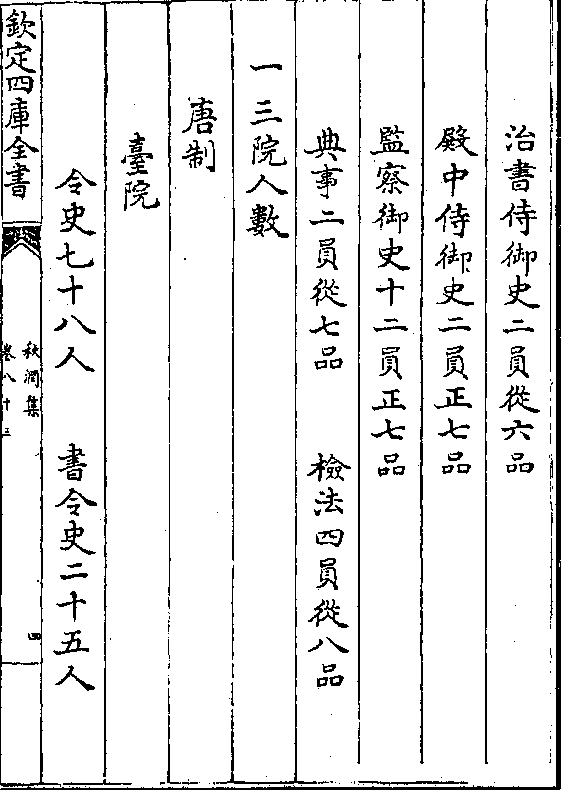 治書侍御史二員從六品
殿中侍御史二員正七品
監察御史十二員正七品
典事二員從七品　檢法四員從八品
一三院人數
唐制
臺院
令史七十八人　書令史二十五人
欽定四庫全書
秋澗集
卷八十三
四